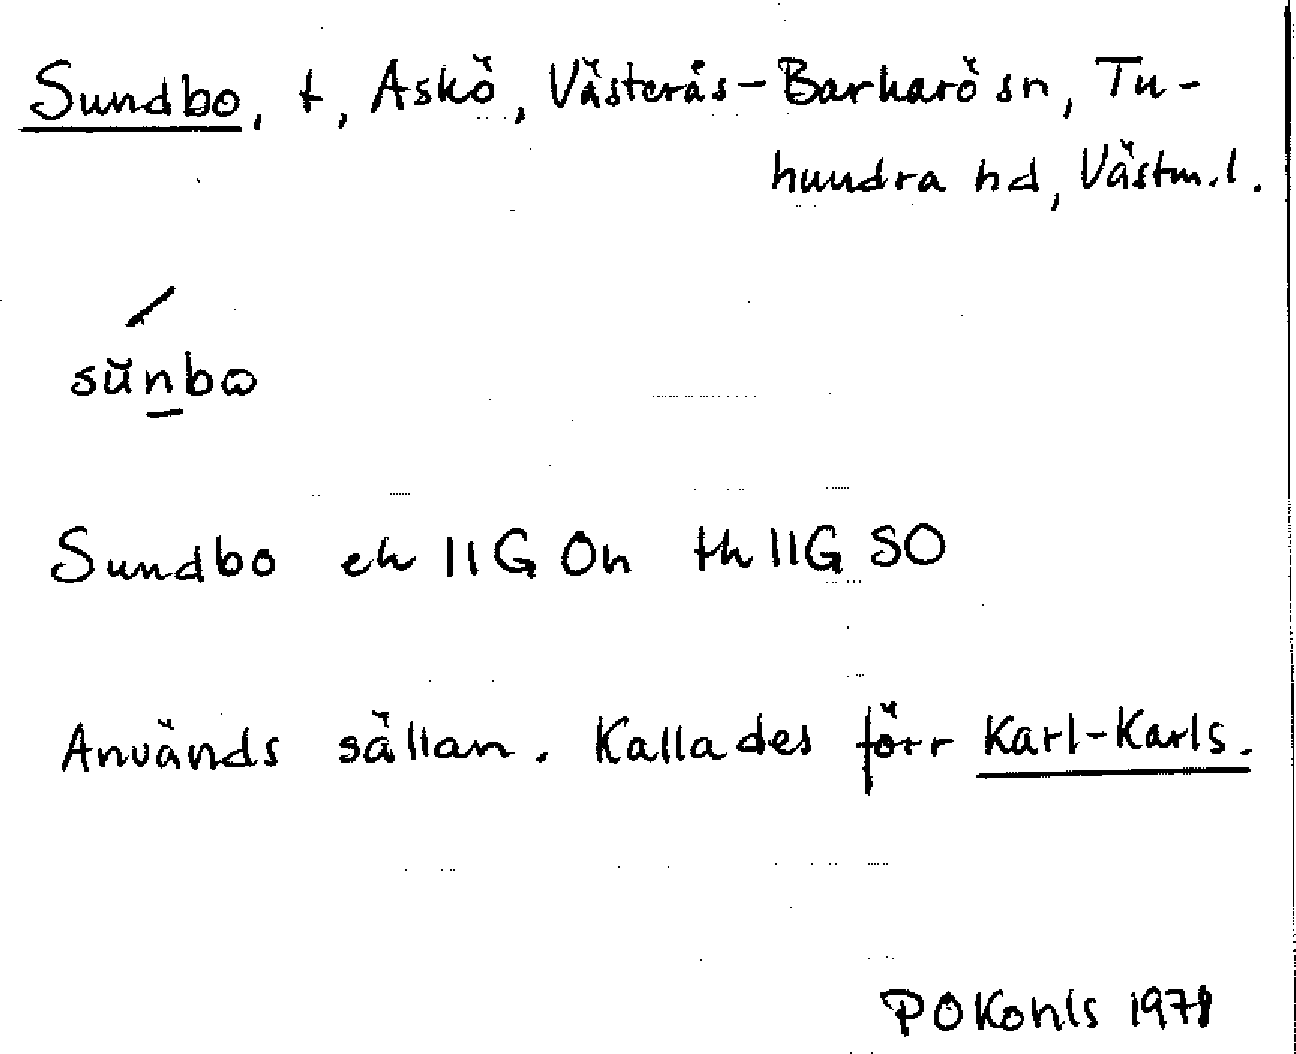 Sundbo, t, Askö, Västerås-Barkarö sn, Tu-
hundra hd, Västm.l.
sŭn̲bo
Sundbo ek 11G Oh th 11G SO
Används sällan. Kallades förr Karl-Karls.